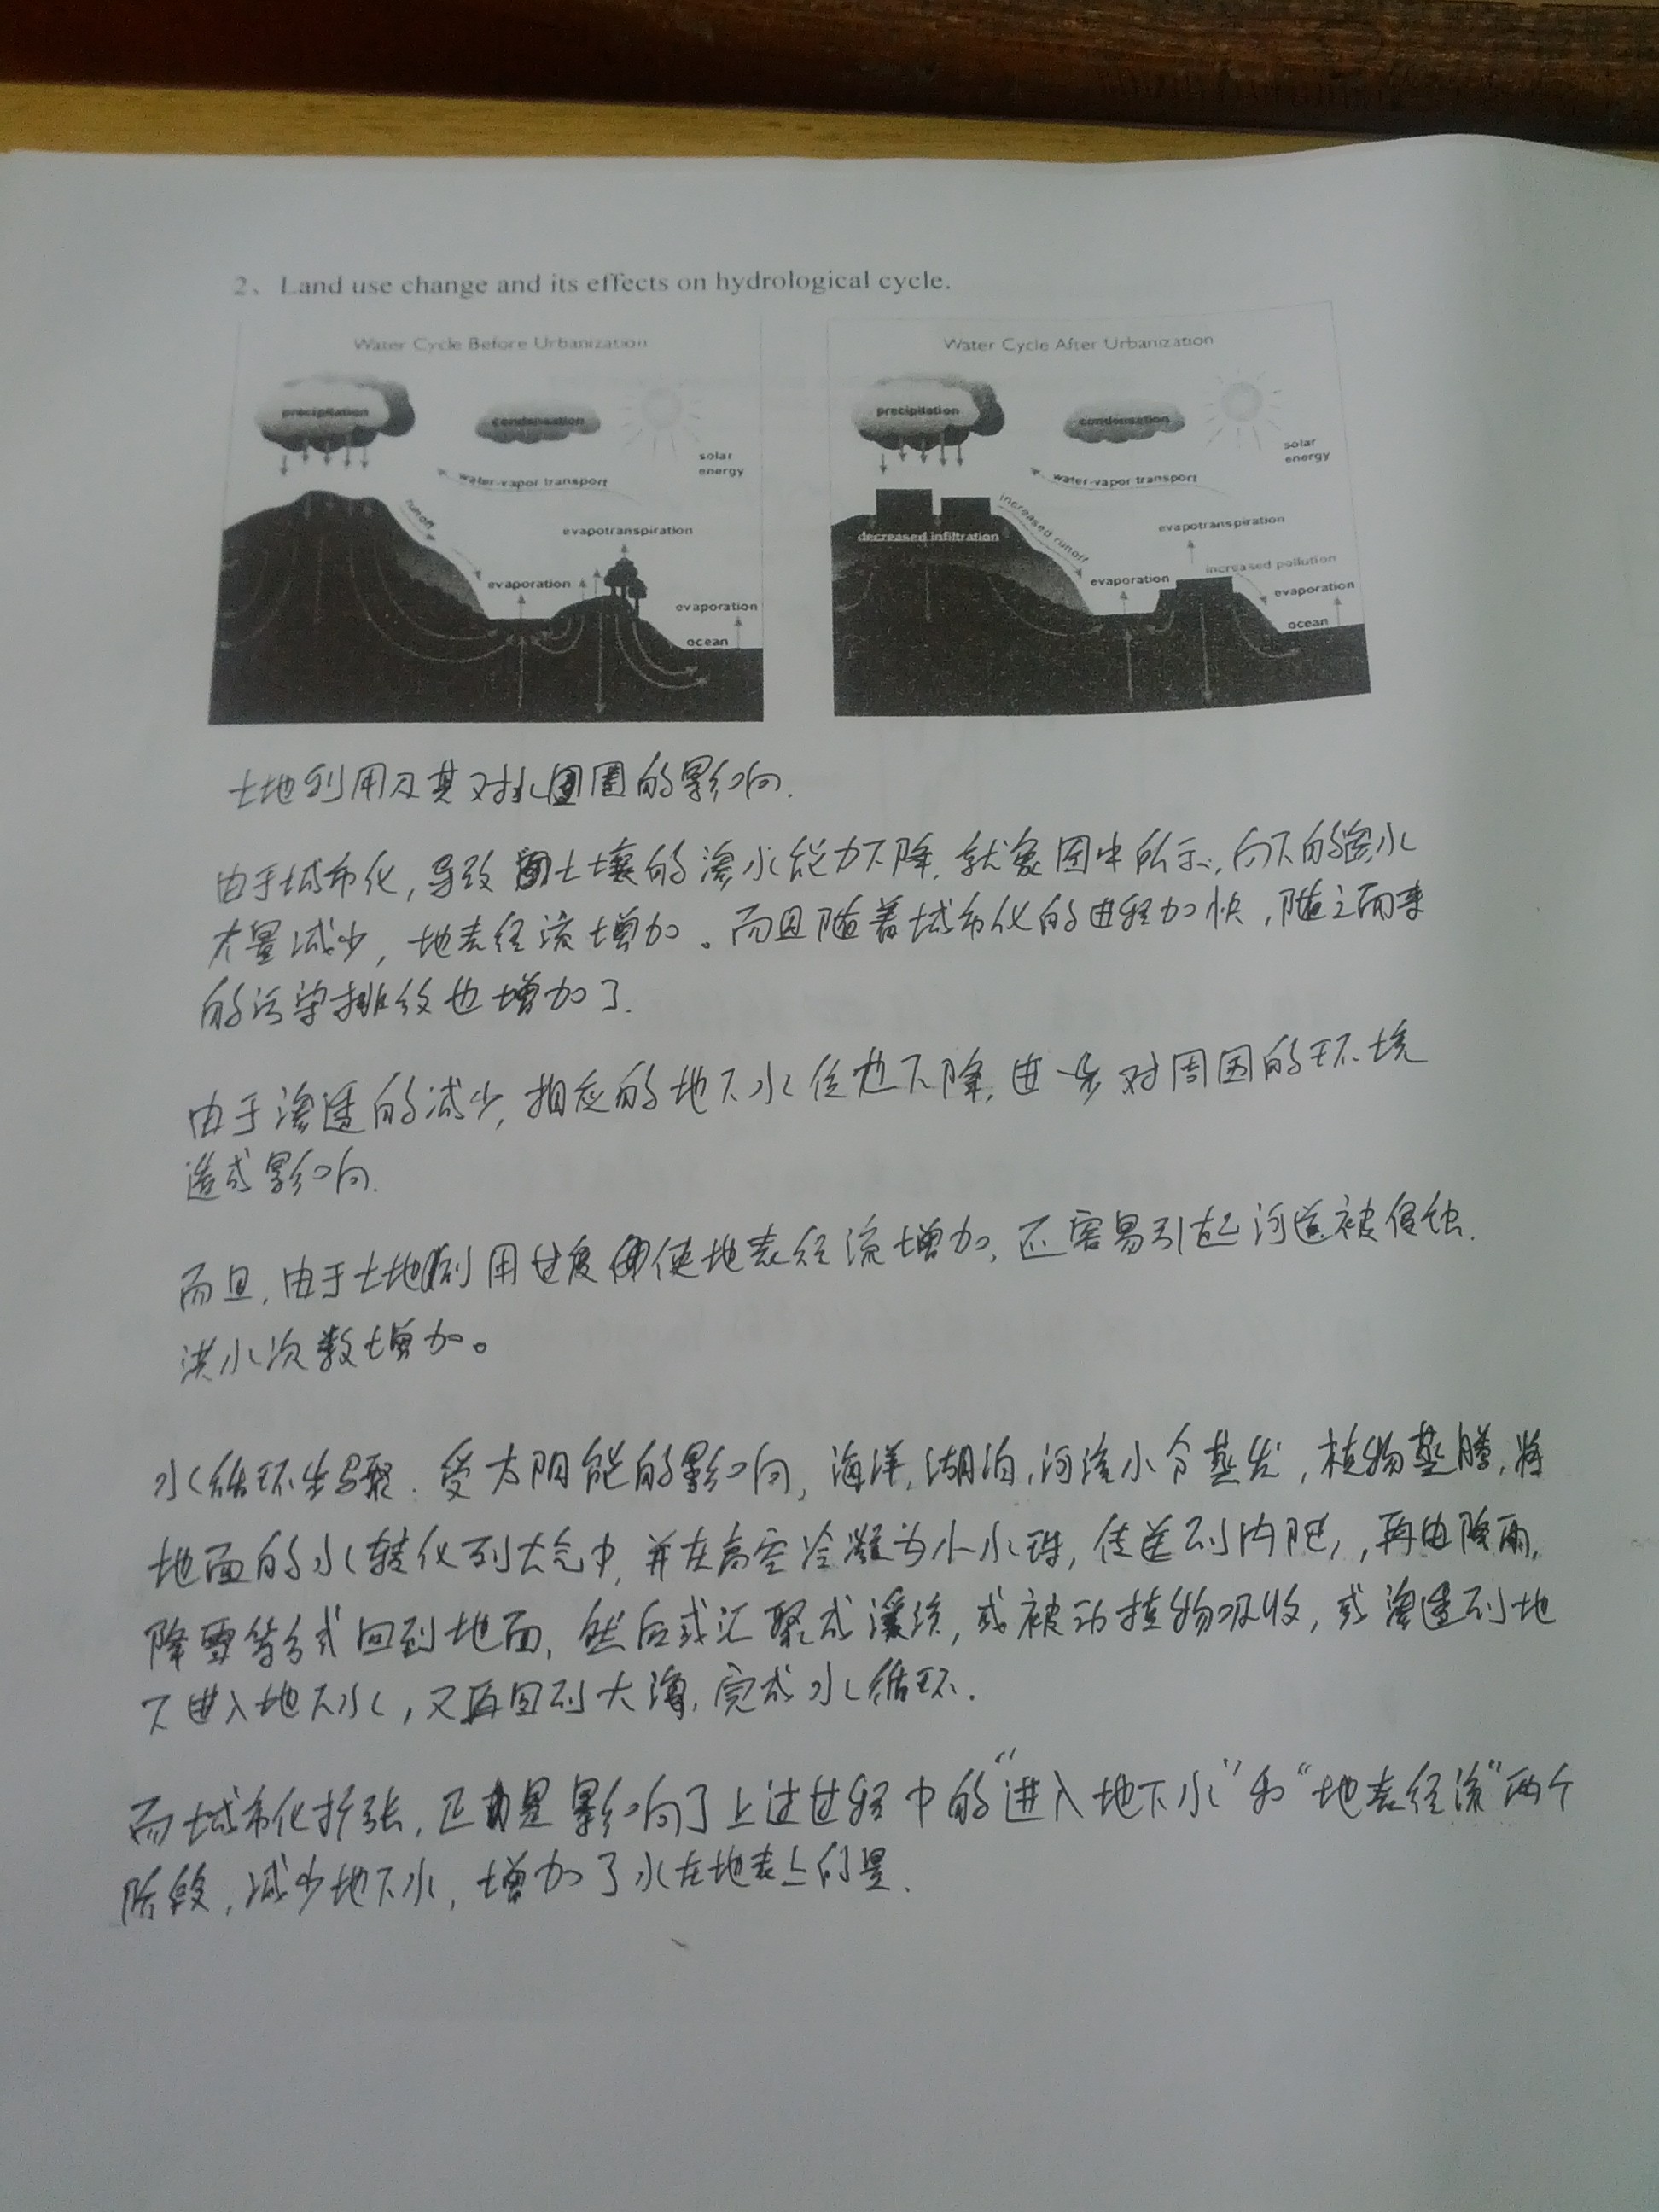 2、Land use change and its effects on hydrological cycle.
Water Cycle Before Urbanization
precipitation
condensation
solar
energy
water-vapor transport
runoff
evapotranspiration
evaporation
evaporation
ocean
Water Cycle After Urbanization
precipitation
condensation
solar
energy
water-vapor transport
decreased infiltration
increased runoff
evapotranspiration
increased pollution
evaporation
evaporation
ocean
土地利用及其对水圈的影响.
由于城市化,导致土壤的渗水能力下降.就象图中所示,向下的渗水
大量减少,地表径流增加。而且随着城市化的进程加快,随之而来
的污染排放也增加了.
由于渗透的减少,相应的地下水位也下降,进一步对周围的环境
造成影响.
而且,由于土地利用过度使地表径流增加,还容易引起河道被侵蚀.
洪水次数增加。
水循环步骤.受太阳能的影响,海洋,湖泊,河流水分蒸发,植物蒸腾,将
地面的水转化到大气中,并在高空冷凝为小水珠,传送到内陆,再由降雨,
降雪等方式回到地面,然后或汇聚成溪流,或被动植物吸收,或渗透到地
下进入地下水,又再回到大海,完成水循环.
而城市化扩张,正是影响了上述过程中的“进入地下水”和“地表径流”两个
阶段,减少地下水,增加了水在地表上的量.